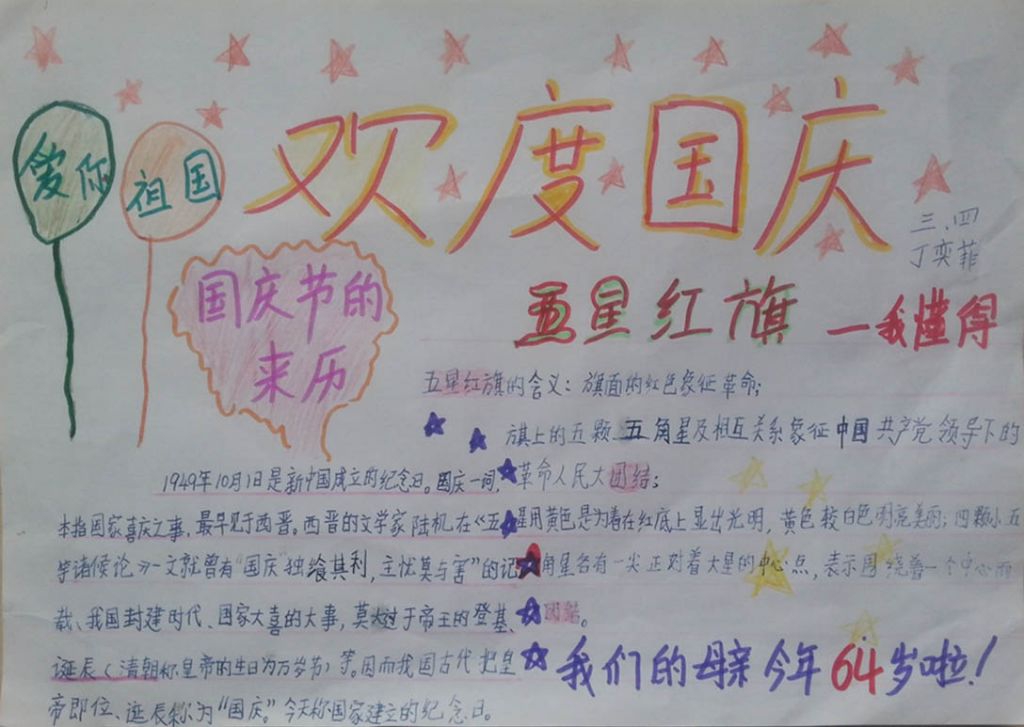 欢度国庆
爱你
祖国
三.四
丁奕菲
国庆节的
来历
五星红旗—我懂得
五星红旗的含义：旗面的红色象征革命；
旗上的五颗五角星及相互关系象征中国共产党领导下的
革命人民大团结；
星用黄色是为着在红底上显出光明，黄色较白色明亮美丽；四颗小五
角星各有一尖正对着大星的中心点，表示围绕着一个中心而
团结。
1949年10月1日是新中国成立的纪念日。国庆一词，
本指国家喜庆之事，最早见于西晋。西晋的文学家陆机在《五
等诸侯论》一文就曾有“国庆独飨其利，主忧莫与害”的记
载、我国封建时代、国家大喜的大事，莫大过于帝王的登基、
诞辰（清朝称皇帝的生日为万岁节）等。因而我国古代把皇
帝即位、诞辰称为“国庆”。今天称国家建立的纪念日。
我们的母亲今年64岁啦！